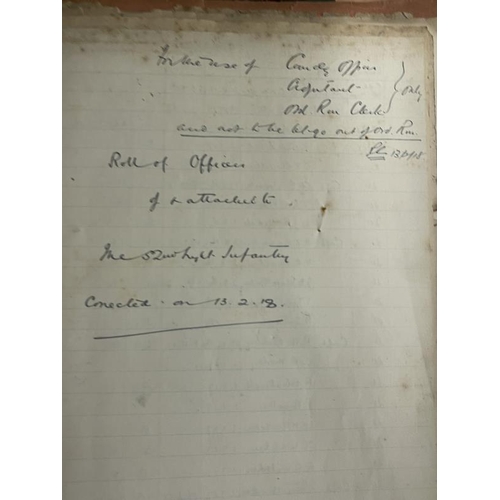 For the use of Comdg Officer
Adjutant
Ord Rm Clerk
only
and not to be let go out of Ord. Rm.
Roll of Officers
of & attached to.
The 52nd Light Infantry
Corrected - on 13.2.18.